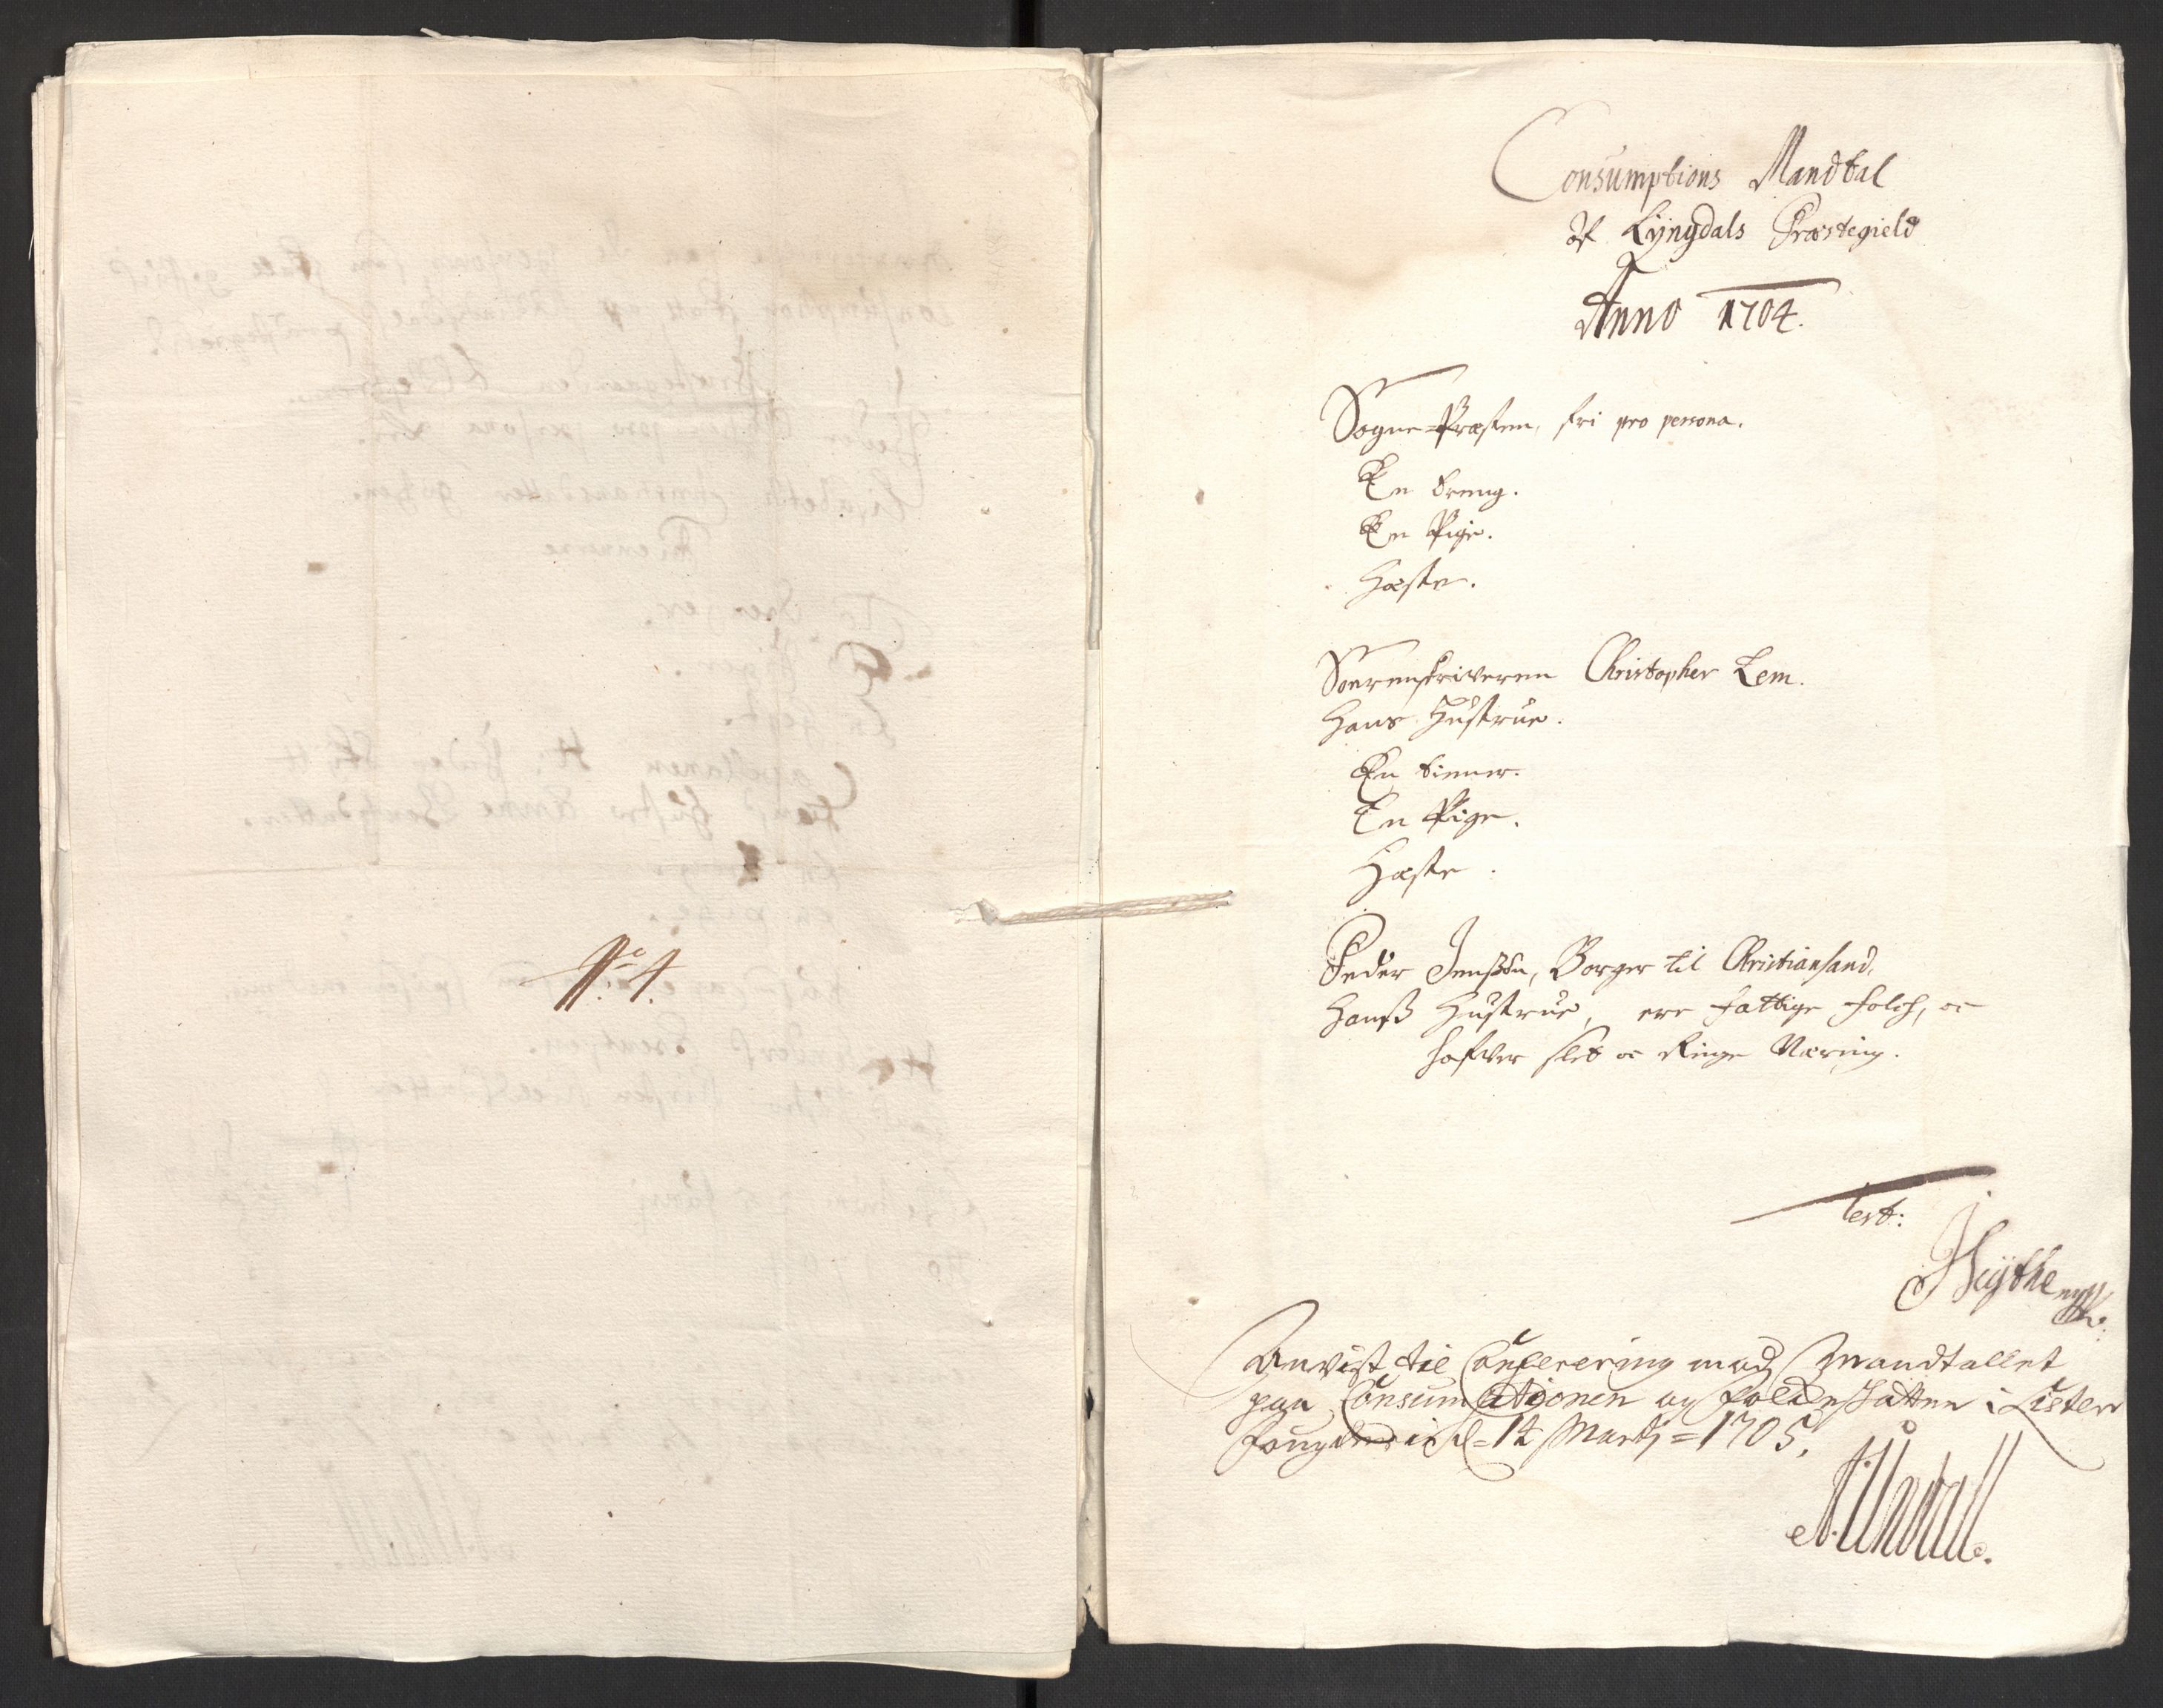 No: 4.
Consumptions Mandtal
af Lyngdals Præstegield
Anno 1704.
Sogne-Præsten, fri pro persona.
En dreng.
En Pige.
Hæste.
Sorenskriveren Christopher Lem.
Hans Hustrue.
En tiener.
En Pige.
Hæste.
Peder Jenssøn, Borger til Christiansand.
Hanß Hustrue, ere fattige folch, oc
hafver slet oc Ringe Næring.
Test:
Anvist til Confērering med Mandtallet
paa Consumptionen og folcke skatten i Lister
fougderi d= 14 Martj = 1705,